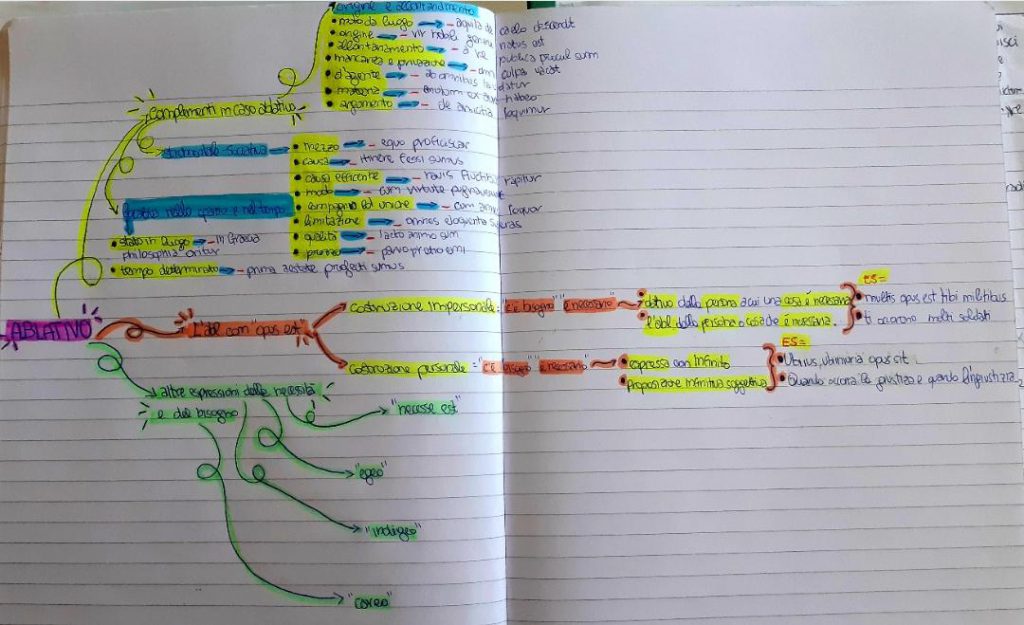 origine e allontanamento
• moto da luogo → - aquila de caelo descendit
• origine → - vir nobili genere natus est
• allontanamento → - a re publica procul sum
• mancanza e privazione → - culpa vacat
• d'agente → - ab omnibus laudatur
• materia → - anulum ex auro habeo
• argomento → - de amicitia loquimur
Complementi in caso ablativo
strumentale sociativa
• mezzo → - equo proficiscar
• causa → - itinere fessi sumus
• causa efficiente → - navis fluctibus rapitur
• modo → - cum virtute pugnaverunt
• compagnia ed unione → - cum loquor
• limitazione → - omnes eloquentia superas
• qualità → - laeto animo sum
• prezzo → - parvo pretio emi
locativo nello spazio e nel tempo
• stato in luogo → - in Grecia
philosophia oritur
• tempo determinato → - prima aestate profecti sumus
ABLATIVO
L'abl com "opus est"
costruzione impersonale = "c'è bisogno" "è necessario"
• dativo della persona a cui una cosa è necessaria
• l'abl della persona o cosa che è necessaria.
ES=
• multis opus est tibi militibus
• ti occorrono molti soldati
costruzione personale = "c'è bisogno" "è necessario"
• espressa con infinito
• Proposizione infinitiva soggettiva
ES=
• Ubi ius, ubi iniuria opus sit
• Quando occorra la giustizia e quando l'ingiustizia
altre espressioni della necessità
e del bisogno
"necesse est"
"egeo"
"indigeo"
"careo"